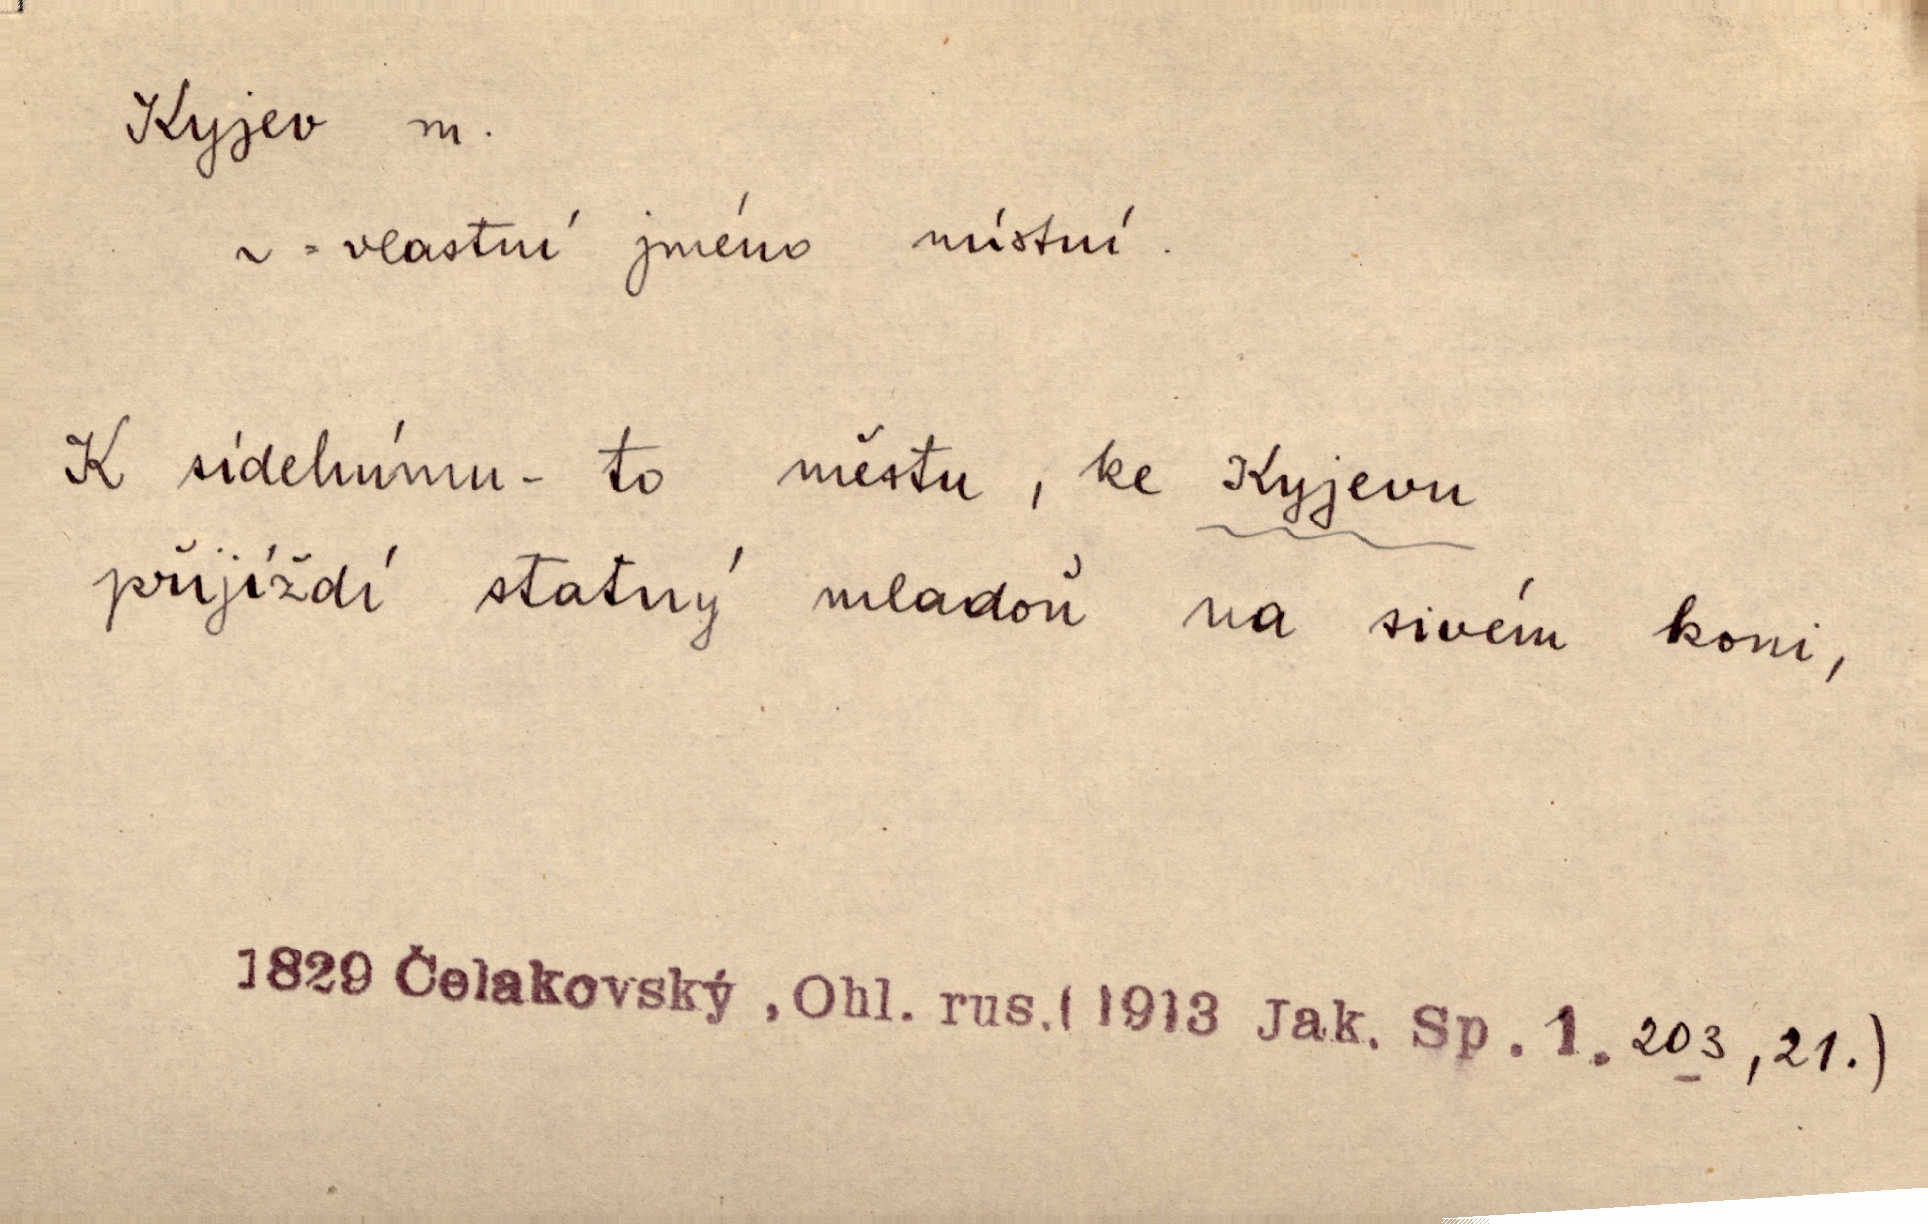 Kyjev m.
~ = vlastní jméno místní.
K sídelnímu-to městu, ke Kyjevu
přijíždí statný mladoň na sivém koni,
1829 Čelakovský, Ohl. rus.(1913 Jak. Sp. 1. 203, 21.)